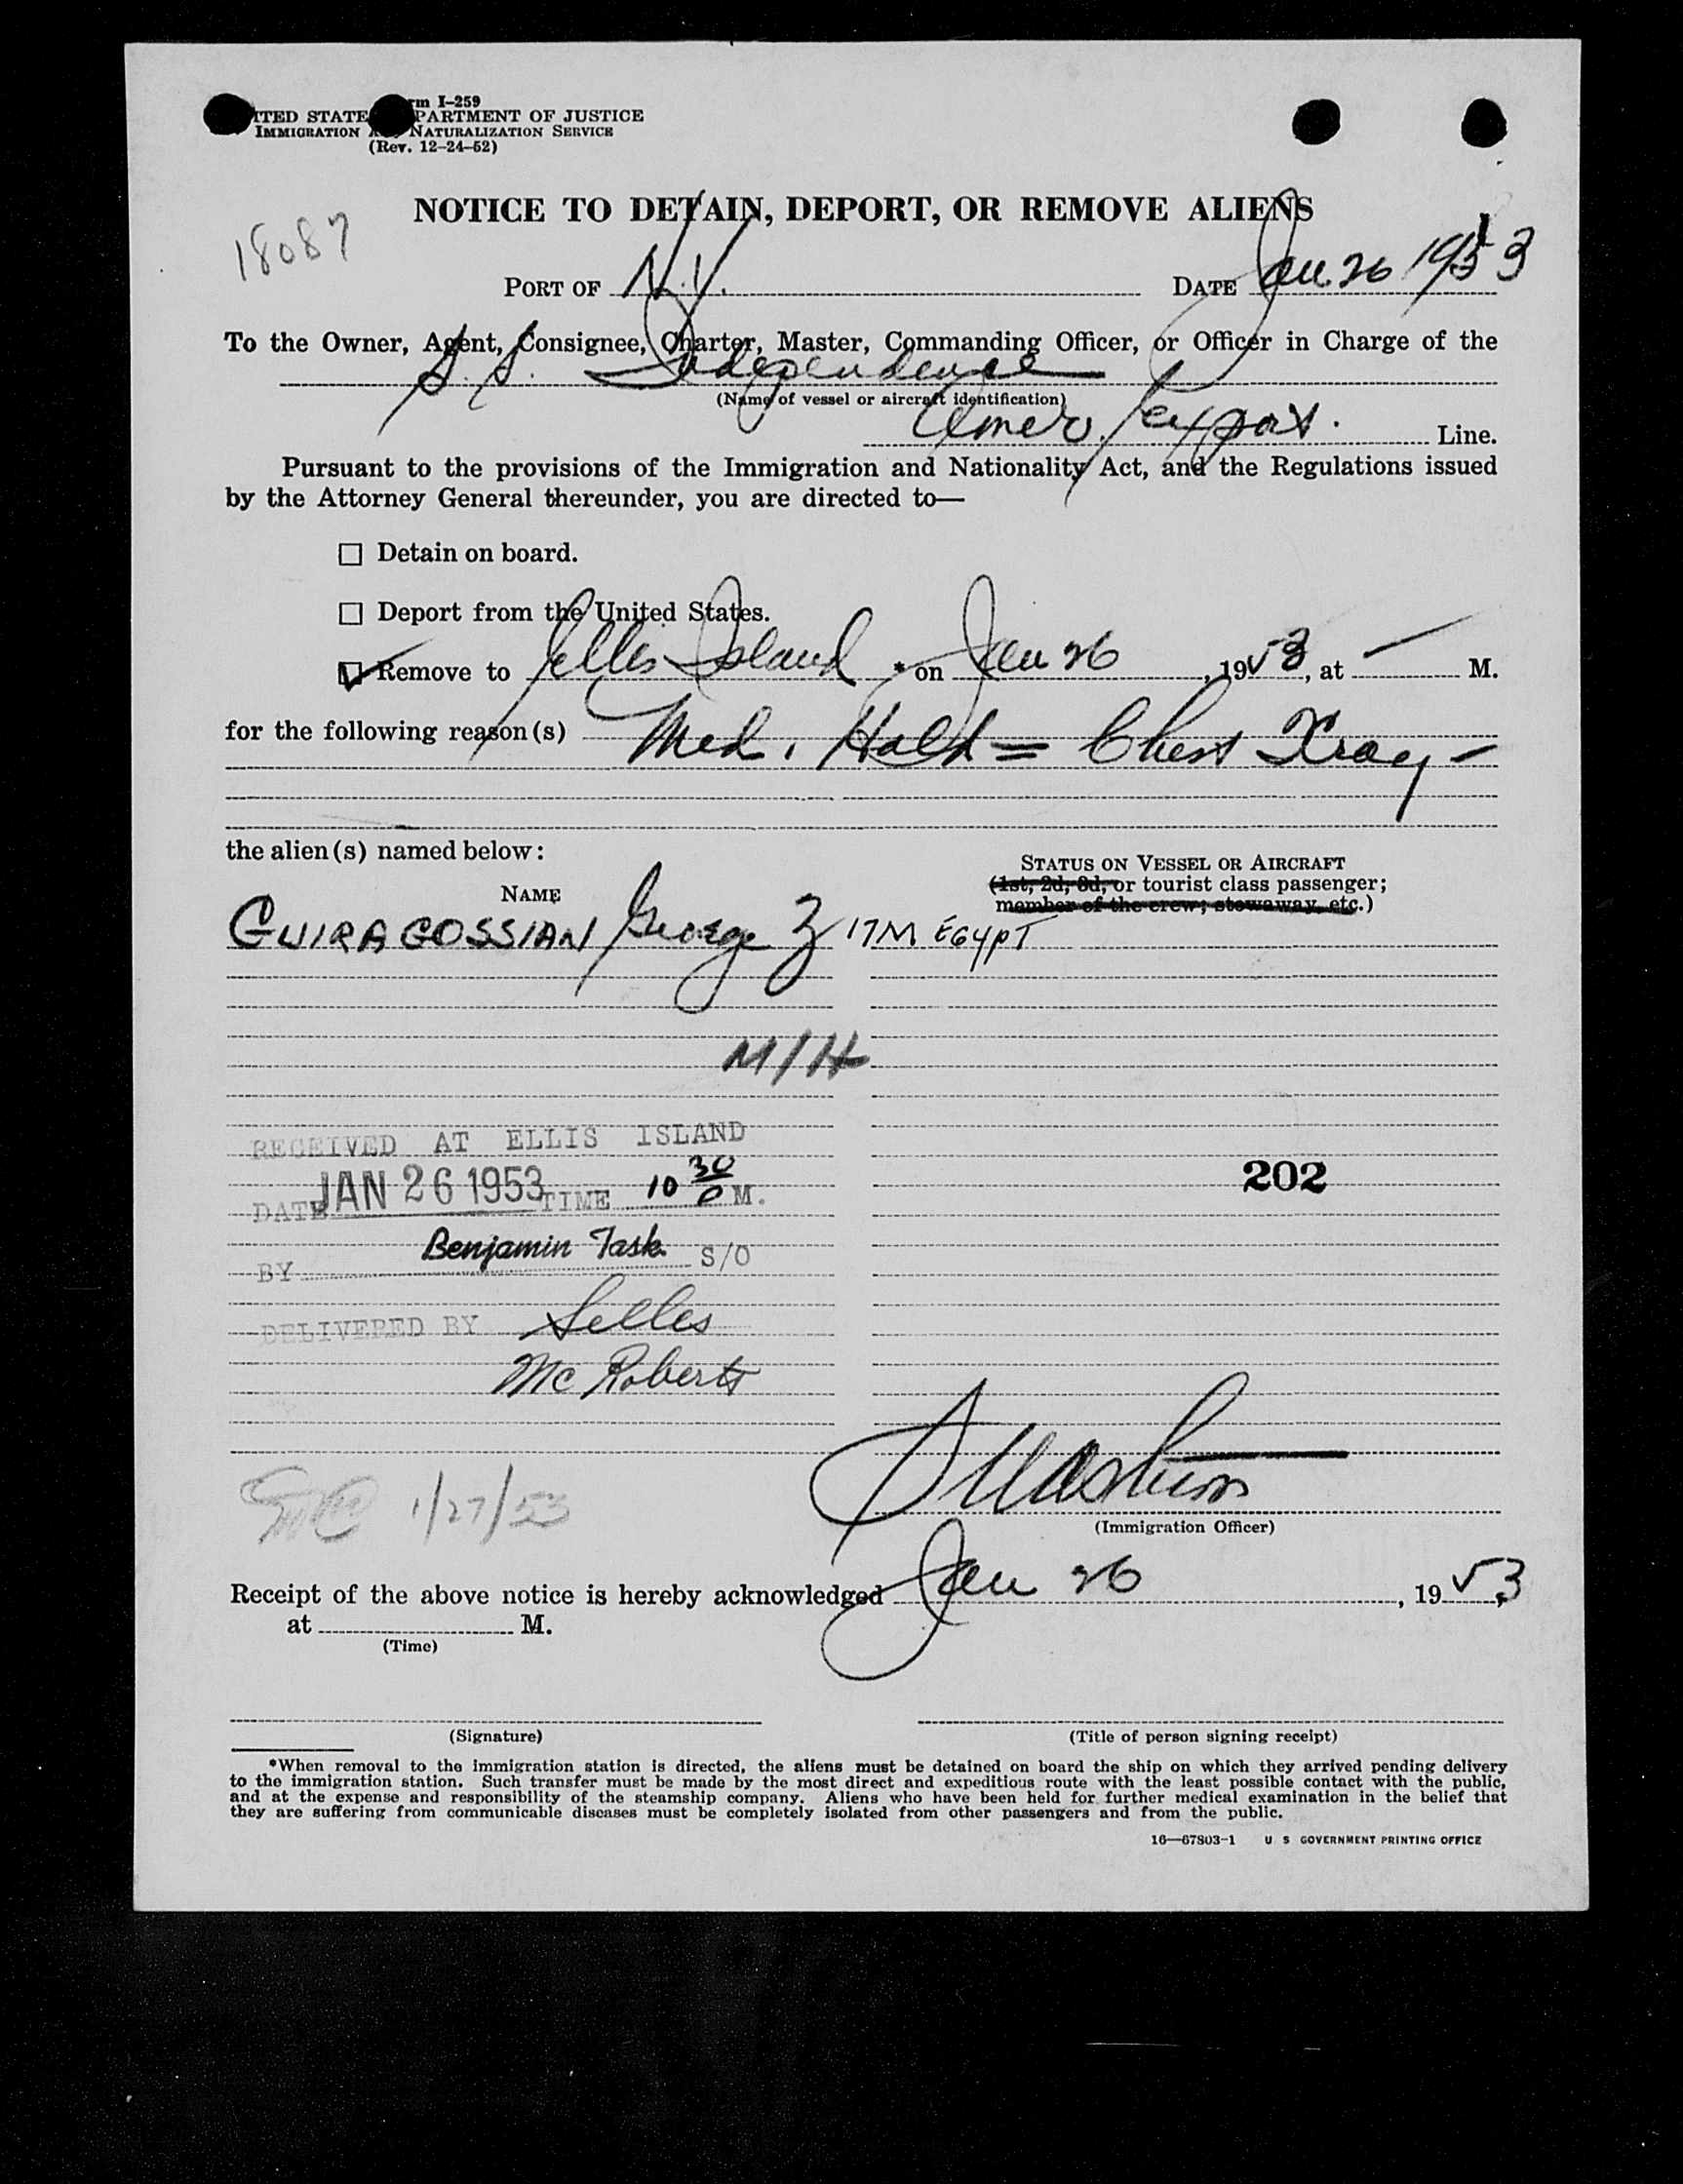 Form I-259
UNITED STATES DEPARTMENT OF JUSTICE
IMMIGRATION AND NATURALIZATION SERVICE
(Rev. 12-24-52)
NOTICE TO DETAIN, DEPORT, OR REMOVE ALIENS
18087
PORT OF N.Y. DATE Jan. 26 1953
To the Owner, Agent, Consignee, Charter, Master, Commanding Officer, or Officer in Charge of the
S.S. Independence
(Name of vessel or aircraft identification)
Amer. Export. Line.
Pursuant to the provisions of the Immigration and Nationality Act, and the Regulations issued
by the Attorney General thereunder, you are directed to—
☐ Detain on board.
☐ Deport from the United States.
☑ Remove to Ellis Island * on Jan 26, 1953, at — M.
for the following reason(s) Med. Hold = Chest Xray -
the alien(s) named below:
STATUS ON VESSEL OR AIRCRAFT
NAME (1st, 2d, 3d, or tourist class passenger;
member of the crew; stowaway, etc.)
GUIRAGOSSIAN George Z 17M EGYPT
M/H
RECEIVED AT ELLIS ISLAND
DATE JAN 26 1953 TIME 10 30 P M.
202
BY Benjamin Task S/O
DELIVERED BY Selles
Mc Roberts
1/27/53
(Immigration Officer)
Receipt of the above notice is hereby acknowledged Jan 26, 1953,
at M.
(Time)
(Signature) (Title of person signing receipt)
*When removal to the immigration station is directed, the aliens must be detained on board the ship on which they arrived pending delivery
to the immigration station. Such transfer must be made by the most direct and expeditious route with the least possible contact with the public,
and at the expense and responsibility of the steamship company. Aliens who have been held for further medical examination in the belief that
they are suffering from communicable diseases must be completely isolated from other passengers and from the public.
16—67803-1 U S GOVERNMENT PRINTING OFFICE